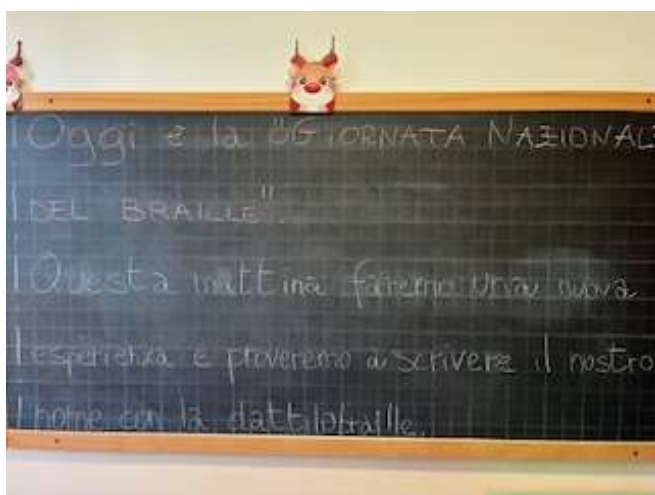 Oggi è la "GIORNATA NAZIONAL
DEL BRAILLE".
Questa mattina faremo una nuova
esperienza e proveremo a scrivere il nostro
nome con la dattilobraille.